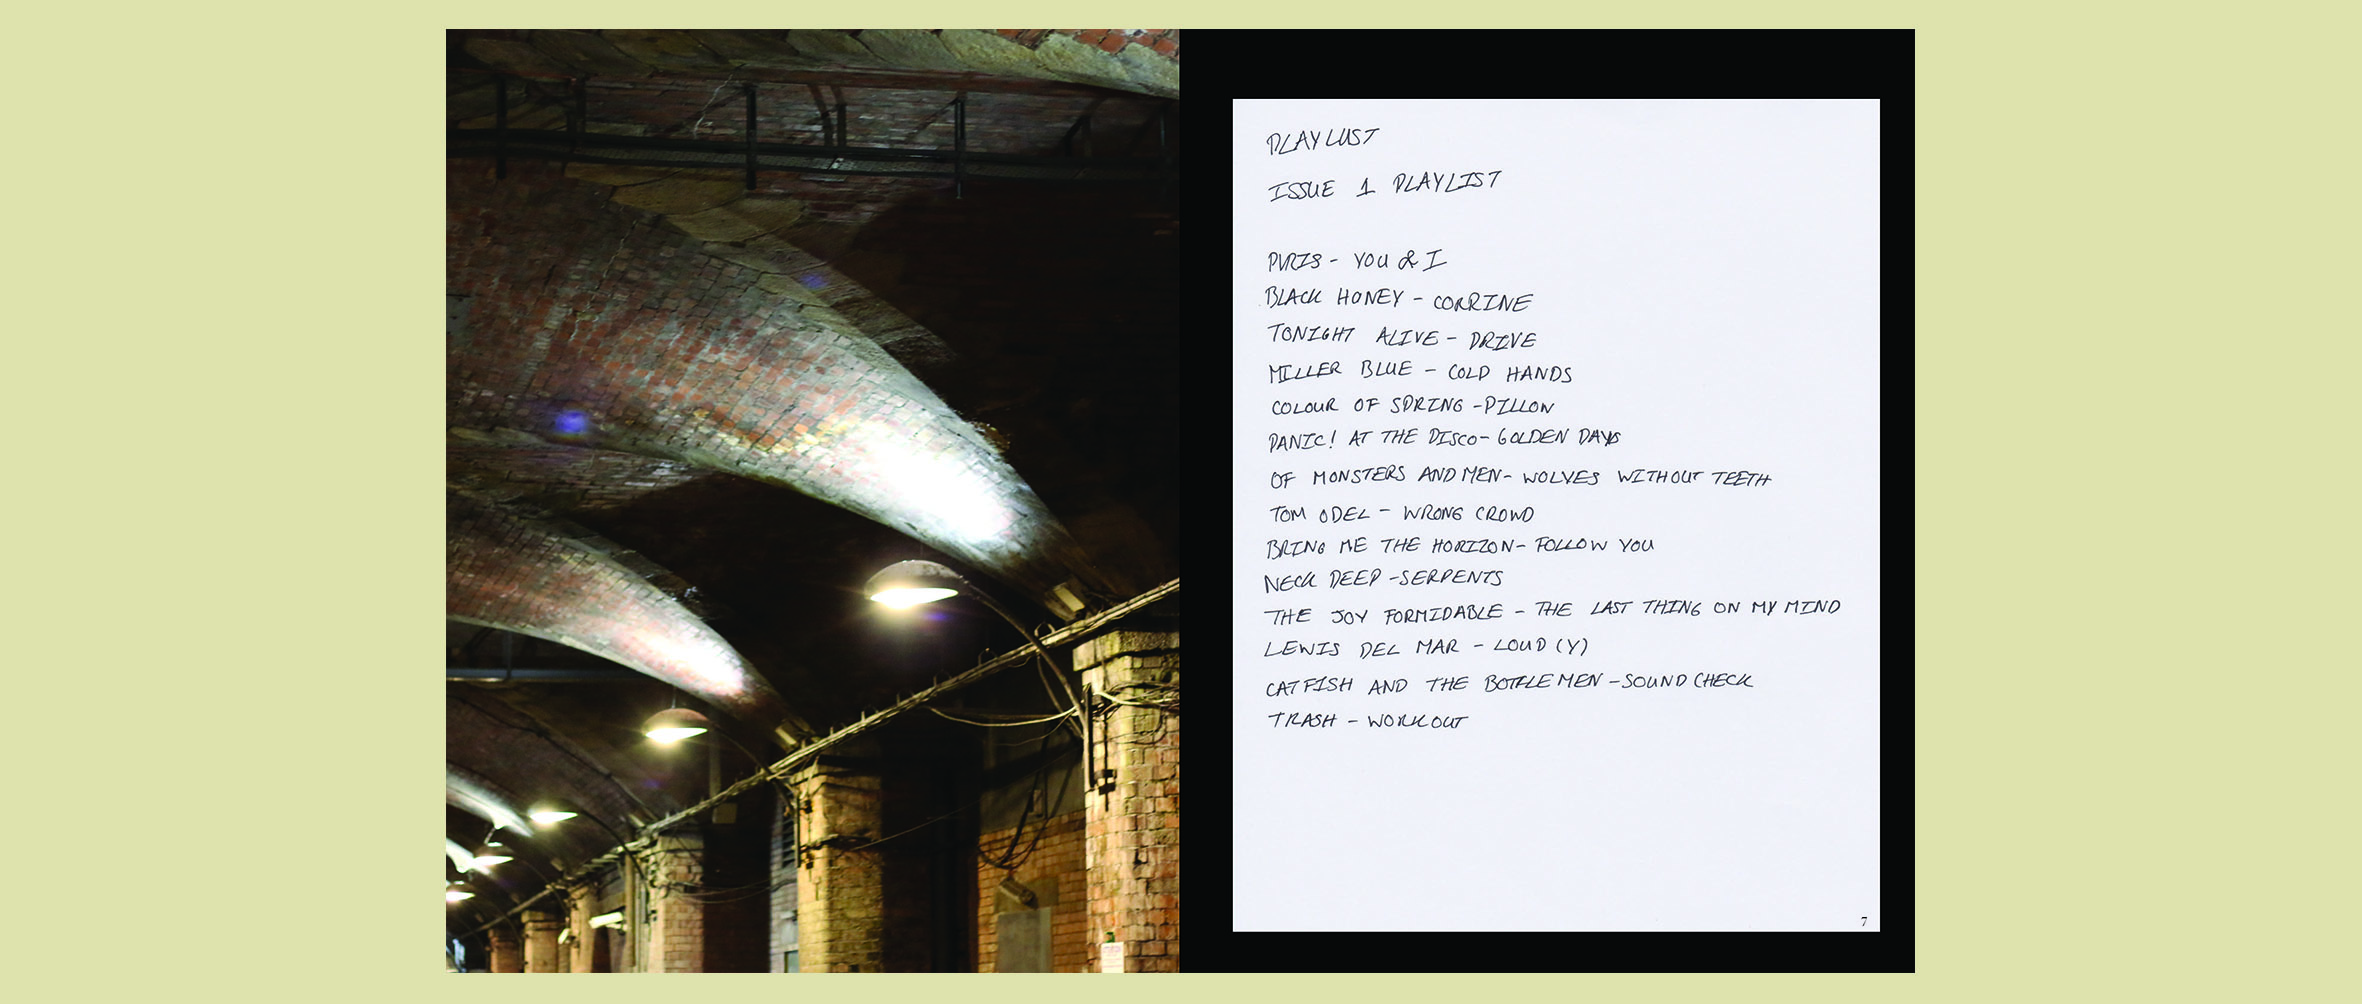 PLAYLIST
ISSUE 1 PLAYLIST
PVRIS - YOU & I
BLACK HONEY - CORRINE
TONIGHT ALIVE - DRIVE
MILLER BLUE - COLD HANDS
COLOUR OF SPRING - PILLOW
PANIC! AT THE DISCO - GOLDEN DAYS
OF MONSTERS AND MEN - WOLVES WITHOUT TEETH
TOM ODEL - WRONG CROWD
BRING ME THE HORIZON - FOLLOW YOU
NECK DEEP - SERPENTS
THE JOY FORMIDABLE - THE LAST THING ON MY MIND
LEWIS DEL MAR - LOUD (Y)
CATFISH AND THE BOTTLEMEN - SOUNDCHECK
TRASH - WORKOUT
7